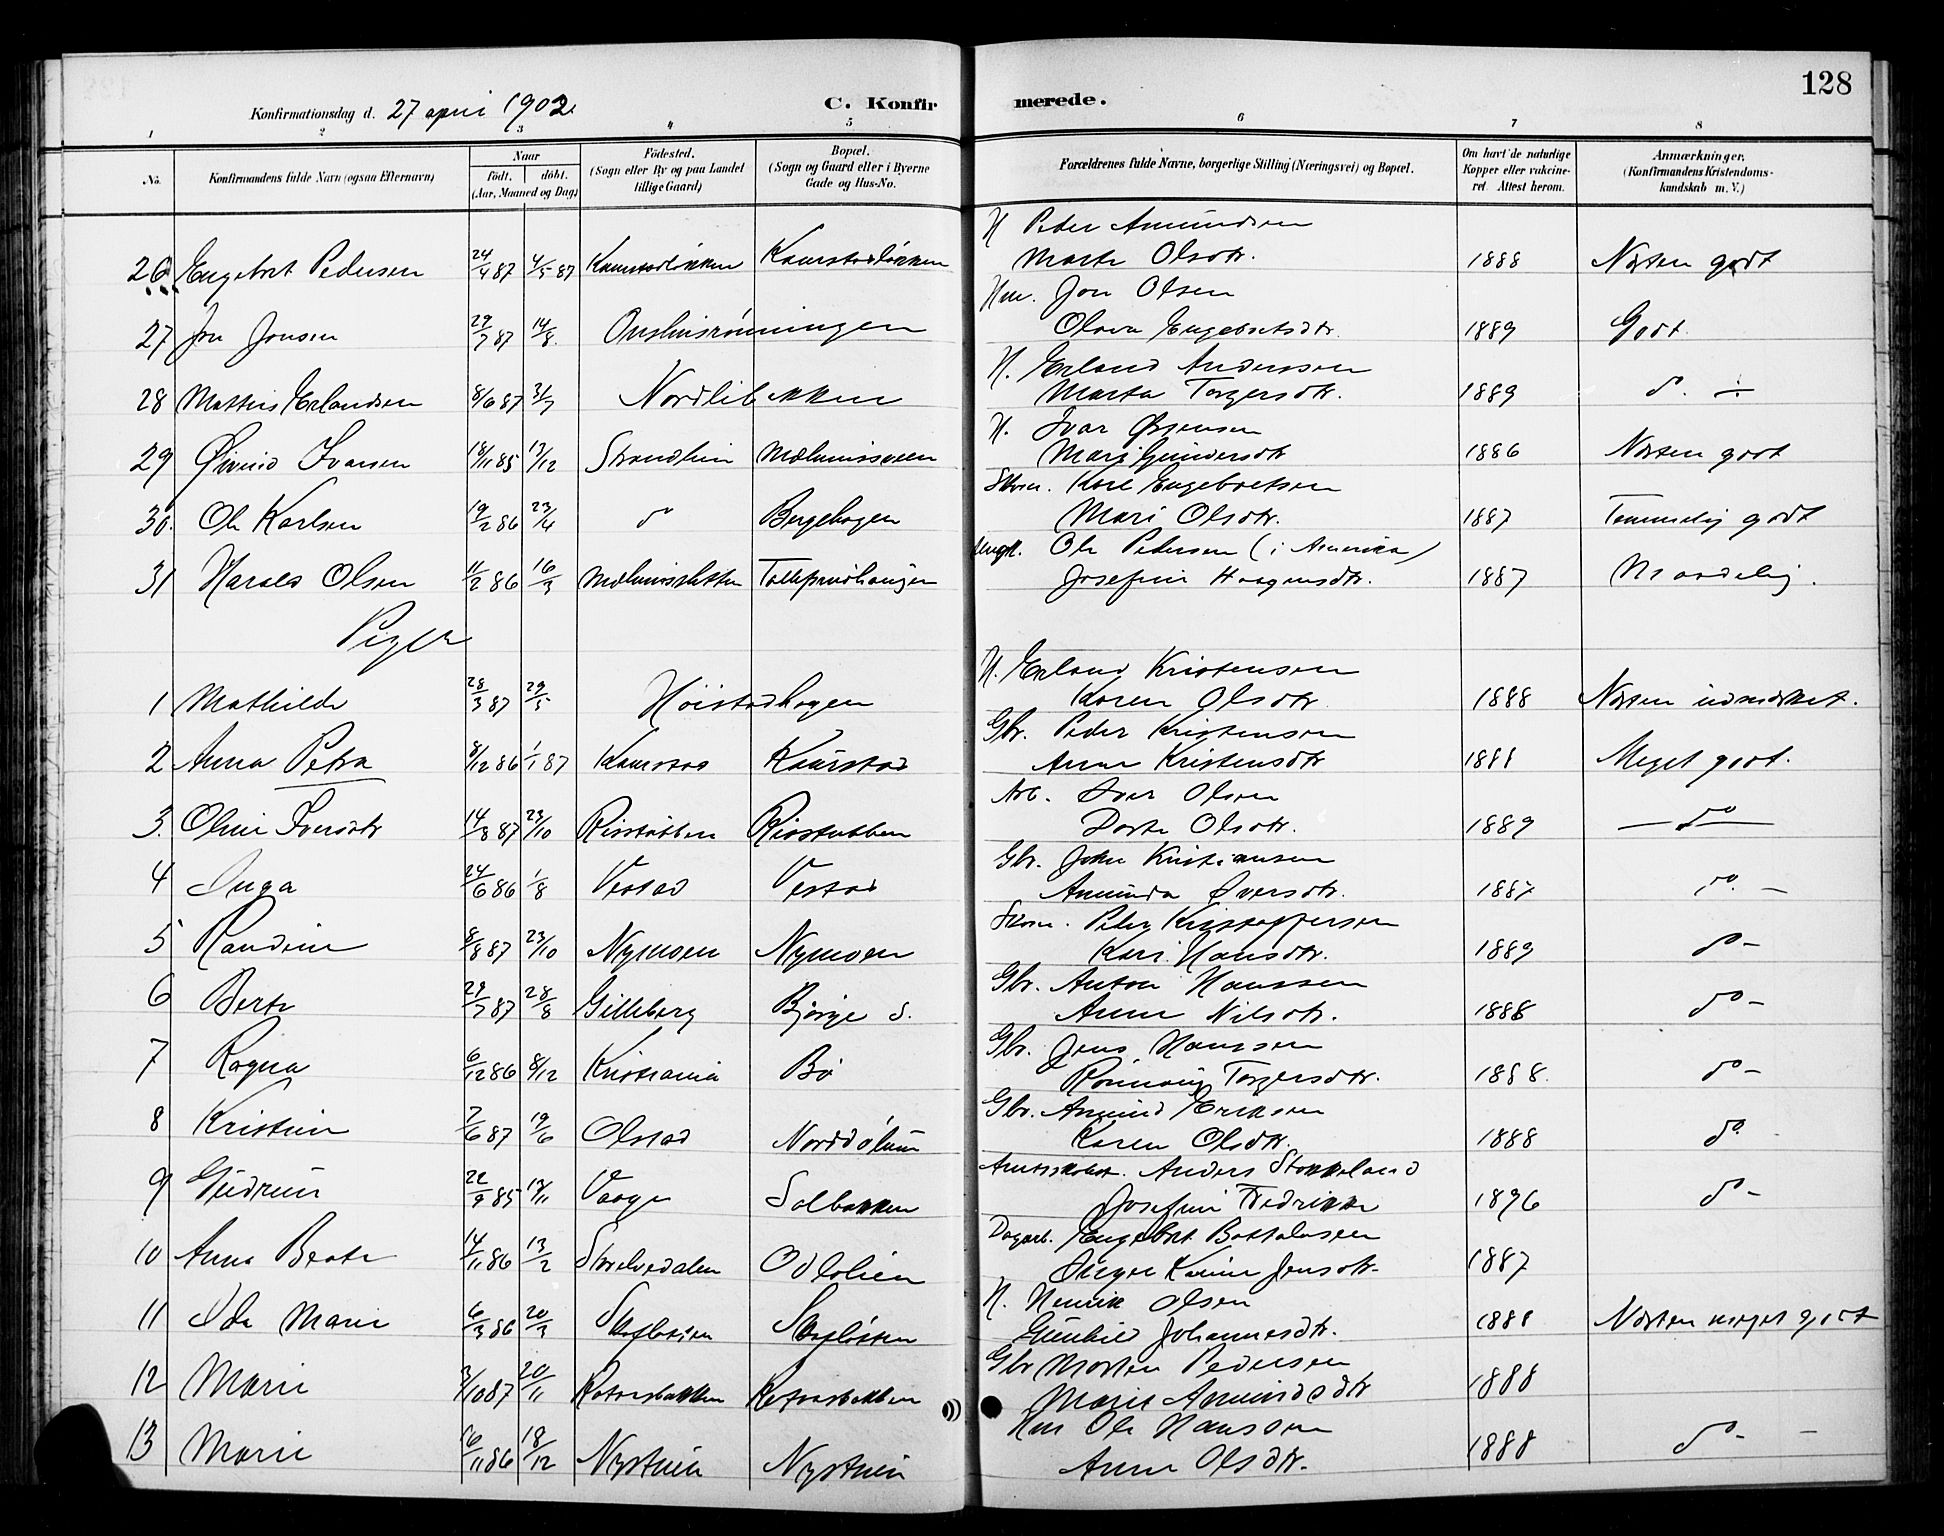 128
Konfirmationsdag d. 27 april 1902. C. Konfirmerede.
1 2 3 4 5 6 7 8
No. Konfirmandens fulde Navn (ogsaa Efternavn) Naar født. døbt. (Aar, Maaned og Dag) Fødested. (Sogn eller By og paa Landet tillige Gaard) Bopæl. (Sogn og Gaard eller i Byerne Gade og Hus-No. Forældrenes fulde Navne, borgerlige Stilling (Næringsvei) og Bopæl. Om havt de naturlige Kopper eller vakcineret. Attest herom. Anmærkninger. (Konfirmandens Kristendomskundskab m. V.)
H Peder Amundsen
26 Engebret Pedersen 24/4 87 4/5 87 Kaurstadløkken Kaurstadløkken Marte Olsdtr. 1888 Næsten godt
Hm. Jon Olsen
27 Jon Jonsen 29/7 87 14/8 Onshusrønningen Olava Engebretsdtr. 1889 Godt.
H. Erland Anderssen
28 Mathis Erlandsen 8/6 87 3/7 Nordlibakken Marta Torgersdtr. 1889 do. —
H. Ivar
29 Øivind Ivarsen 18/11 85 13/12 Strandheim Mari Gundersdtr 1886 Næsten godt
Karl Engebretsen
30. Ole Karlsen 19/2 86 23/4 do Bergehagen Mari Olsdtr. 1887 Temmelig godt
Ungk. Ole Pedersen (i Amerika)
31 Harald Olsen 11/2 86 16/3 Josefine Haagensdtr. 1887 Maadelig.
Piger
H. Erland Kristensen
1 Mathilde 28/3 87 29/5 Høistadhagen Karen Olsdtr. 1888 Næsten udmærket.
Gbr. Peder Kristensen
2 Anna Petra 8/12 86 1/1 87 Kaurstad Kaurstad Anne Kristensdtr 1888 Meget godt.
Arb. Iver Olsen
3. Oline Iversdtr 14/8 87 23/10 Risstubben Risstubben Dorte Olsdtr. 1889 — do —
Gbr. John Kristiansen
4 Inga 24/6 86 1/8 Vestad Vestad Amunda Iversdtr. 1887 do. —
Peder Kristoffersen
5 Randine 8/8 87 23/10 Nymoen Nymoen Kari Hansdtr. 1889 do -
Gbr. Anton Hanssen
6 Berte 29/7 87 28/8 Gilleberg Bjørge S. Anne Nilsdtr. 1888 do -
Gbr. Jens Hanssen
7 Ragna 6/12 86 8/12 Kristiania Bø Rønnaug Torgersdtr. 1888. do -
Gbr. Amund Eriksen
8 Kristine 7/6 87 19/6 Olstad Karen Olsdtr. 1888 do.
Anders Stokkeland
9 Gudrun 22/9 85 13/11 Vaage Solbakken Josefine Fredrikke 1896 do -
Dagarb. Engebret Bottolvsen
10 Anna Beate 14/11 86 13/2 Skvelvedalen Odlolien Inger Karine Jensdtr- 1887
H. Henrik Olsen
11 Ida Marie 6/3 86 20/3 Gunhild Johannesdtr. 1888 Næsten meget godt
Gbr Morten Pedersen
12 Marie 3/10 87 20/11 Marit Amundsdtr 1888
Hm Ole Hanssen
13 Marie 6/11 86 18/12 Nystuen Nystuen Anne Olsdtr. 1888 do - -